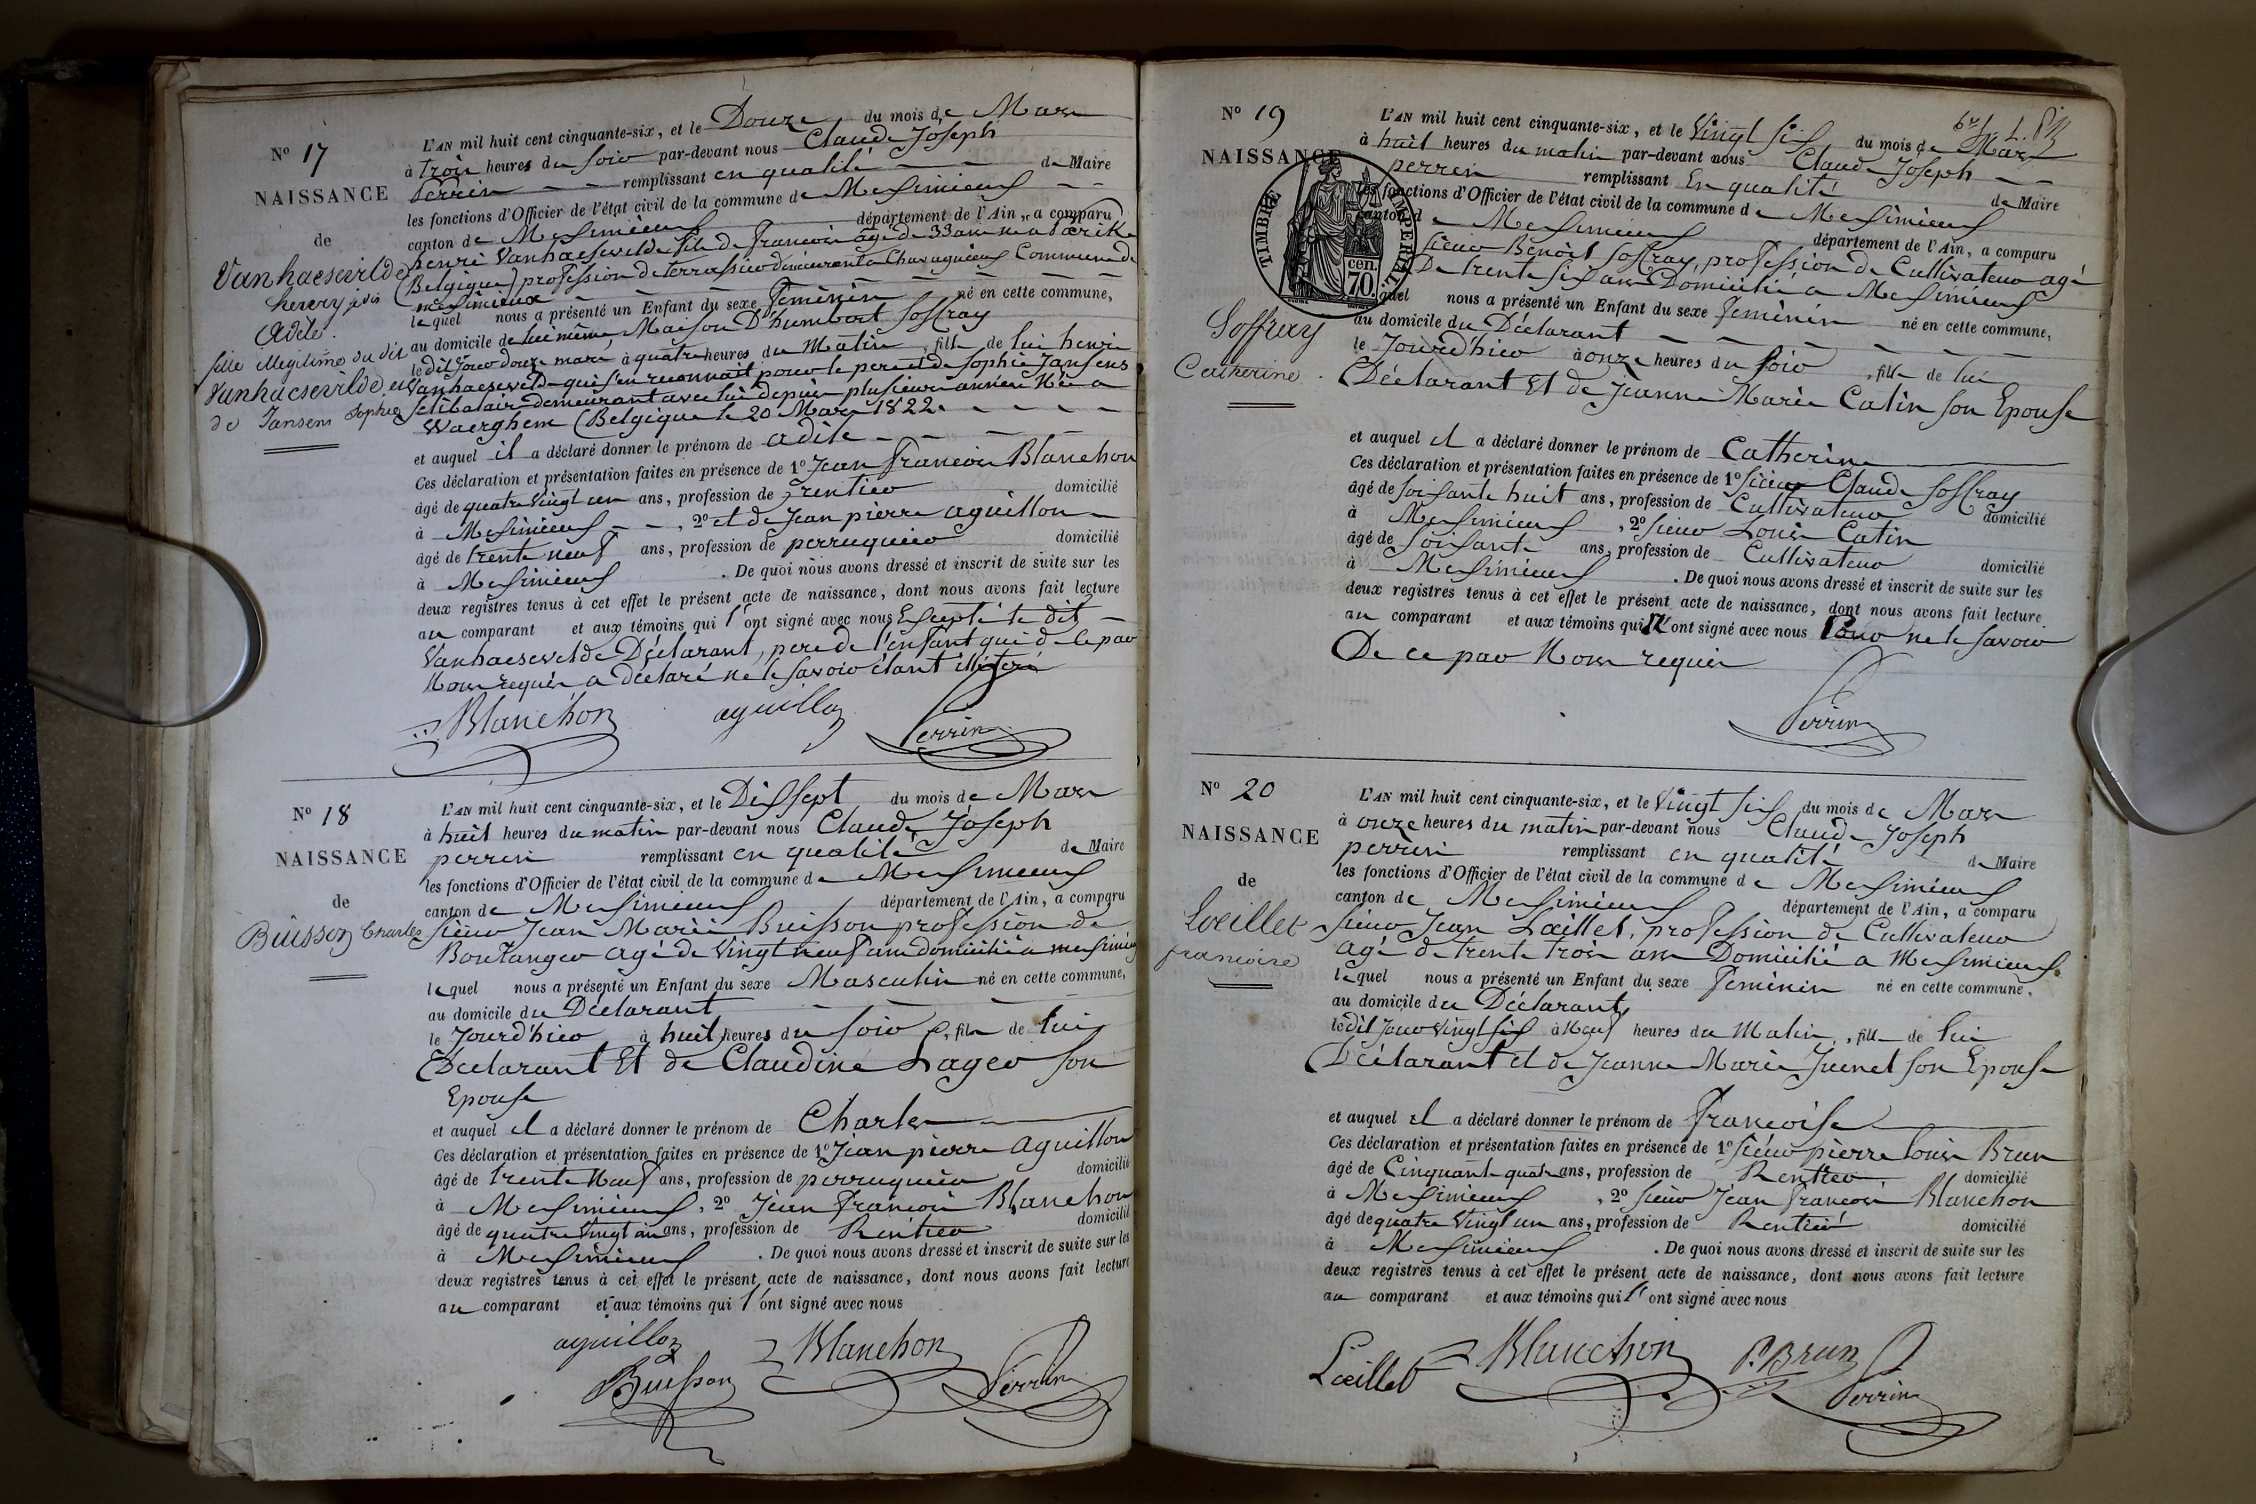 N° 17
NAISSANCE
de
Vanhaesevilde
Adile.
fille illégitime du dit
Vanhaesevilde et
de Jansens Sophie
L'AN mil huit cent cinquante-six, et le Douze du mois de Mars
à trois heures du soir par-devant nous Claude Joseph
Perrin remplissant en qualité de Maire
les fonctions d'Officier de l'état civil de la commune de Meximieux
canton de Meximieux département de l'Ain, a comparu
henri Vanhaesevelde fils de francois âgé de 33 ans né a
(Belgique) profession de terrassier demeurant a Chavagnieux Commune de
meximieux
lequel nous a présenté un Enfant du sexe féminin né en cette commune,
au domicile de lui même, Maison D'humbert Soffray
le dit jour douze mars à quatre heures du Matin, fille de lui henri
Vanhaesevelde qui s'en reconnait pour le pere et de Sophie Jansens
Selibataire demeurant avec lui depuis plusieurs années Née a
Waerghem (Belgique le 20 Mars 1822.
et auquel il a déclaré donner le prénom de adile
Ces déclaration et présentation faites en présence de 1° Jean francois Blanchon
âgé de quatre Vingt un ans, profession de rentier domicilié
à Meximieux, 2° et de Jean pierre aguillon
âgé de trente neuf ans, profession de perruquier domicilié
à Meximieux. De quoi nous avons dressé et inscrit de suite sur les
deux registres tenus à cet effet le présent acte de naissance, dont nous avons fait lecture
au comparant et aux témoins qui l' ont signé avec nous Excepté le dit
Vanhaesevelde Déclarant, pere de l'enfant qui de ce par
Nous requis a déclaré ne le savoir étant illitéré
Blanchon aguillon Perrin
N° 18
NAISSANCE
de
Buisson Charles
L'AN mil huit cent cinquante-six, et le Dixsept du mois de Mars
à huit heures du matin par-devant nous Claude Joseph
perrin remplissant en qualité de Maire
les fonctions d'Officier de l'état civil de la commune de Meximieux
canton de Meximieux département de l'Ain, a comparu
sieur Jean Marie Buisson profession de
Boulanger agé de Vingt neuf ans domicilié a meximieux
lequel nous a présenté un Enfant du sexe Masculin né en cette commune,
au domicile du Déclarant
le Jourd'hier à huit heures du soir, fils de lui
Déclarant Et de Claudine Lager son
Epouse
et auquel il a déclaré donner le prénom de Charles
Ces déclaration et présentation faites en présence de 1° Jean pierre aguillon
âgé de trente Neuf ans, profession de perruquier domicilié
à Meximieux, 2° Jean francois Blanchon
âgé de quatre Vingt un ans, profession de Rentier domicilié
à Meximieux. De quoi nous avons dressé et inscrit de suite sur les
deux registres tenus à cet effet le présent acte de naissance, dont nous avons fait lecture
au comparant et aux témoins qui l' ont signé avec nous
aguillon Blanchon
Buisson Perrin
N° 19
NAISSANCE
TIMBRE IMPÉRIAL
cen.
70
Soffray
Catherine.
L'AN mil huit cent cinquante-six, et le Vingt six du mois de Mars
à huit heures du matin par-devant nous Claude Joseph
perrin remplissant En qualité de Maire
les fonctions d'Officier de l'état civil de la commune de Meximieux
canton de Meximieux département de l'Ain, a comparu
sieur Benoît Soffray, profession de Cultivateur agé
De trente six ans Domicilié a Meximieux
lequel nous a présenté un Enfant du sexe féminin né en cette commune,
au domicile du Déclarant
le Jourd'hier à onze heures du soir, fille de lui
Déclarant Et de Jeanne Marie Catin son Epouse
et auquel il a déclaré donner le prénom de Catherine
Ces déclaration et présentation faites en présence de 1° sieur Claude Soffray
âgé de soixante huit ans, profession de Cultivateur domicilié
à Meximieux, 2° sieur Louis Catin
âgé de soixante ans, profession de Cultivateur domicilié
à Meximieux. De quoi nous avons dressé et inscrit de suite sur les
deux registres tenus à cet effet le présent acte de naissance, dont nous avons fait lecture
au comparant et aux témoins qui N' ont signé avec nous Pour ne le savoir
De ce par Nous requis
Perrin
N° 20
NAISSANCE
de
Loeillet
francoise
L'AN mil huit cent cinquante-six, et le Vingt six du mois de Mars
à onze heures du matin par-devant nous Claude Joseph
perrin remplissant en qualité de Maire
les fonctions d'Officier de l'état civil de la commune de Meximieux
canton de Meximieux département de l'Ain, a comparu
sieur Jean Lœillet, profession de Cultivateur
agé de trente trois ans Domicilié a Meximieux
lequel nous a présenté un Enfant du sexe féminin né en cette commune,
au domicile du Déclarant
ledit Jour Vingt six à Neuf heures du Matin, fille de lui
Déclarant et de Jeanne Marie Juenet son Epouse
et auquel il a déclaré donner le prénom de francoise
Ces déclaration et présentation faites en présence de 1° sieur pierre louis Brun
âgé de Cinquante quatre ans, profession de Rentier domicilié
à Meximieux, 2° sieur Jean francois Blanchon
âgé de quatre Vingt un ans, profession de Rentier domicilié
à Meximieux. De quoi nous avons dressé et inscrit de suite sur les
deux registres tenus à cet effet le présent acte de naissance, dont nous avons fait lecture
au comparant et aux témoins qui l' ont signé avec nous
Lœillet Blanchon P. Brun Perrin